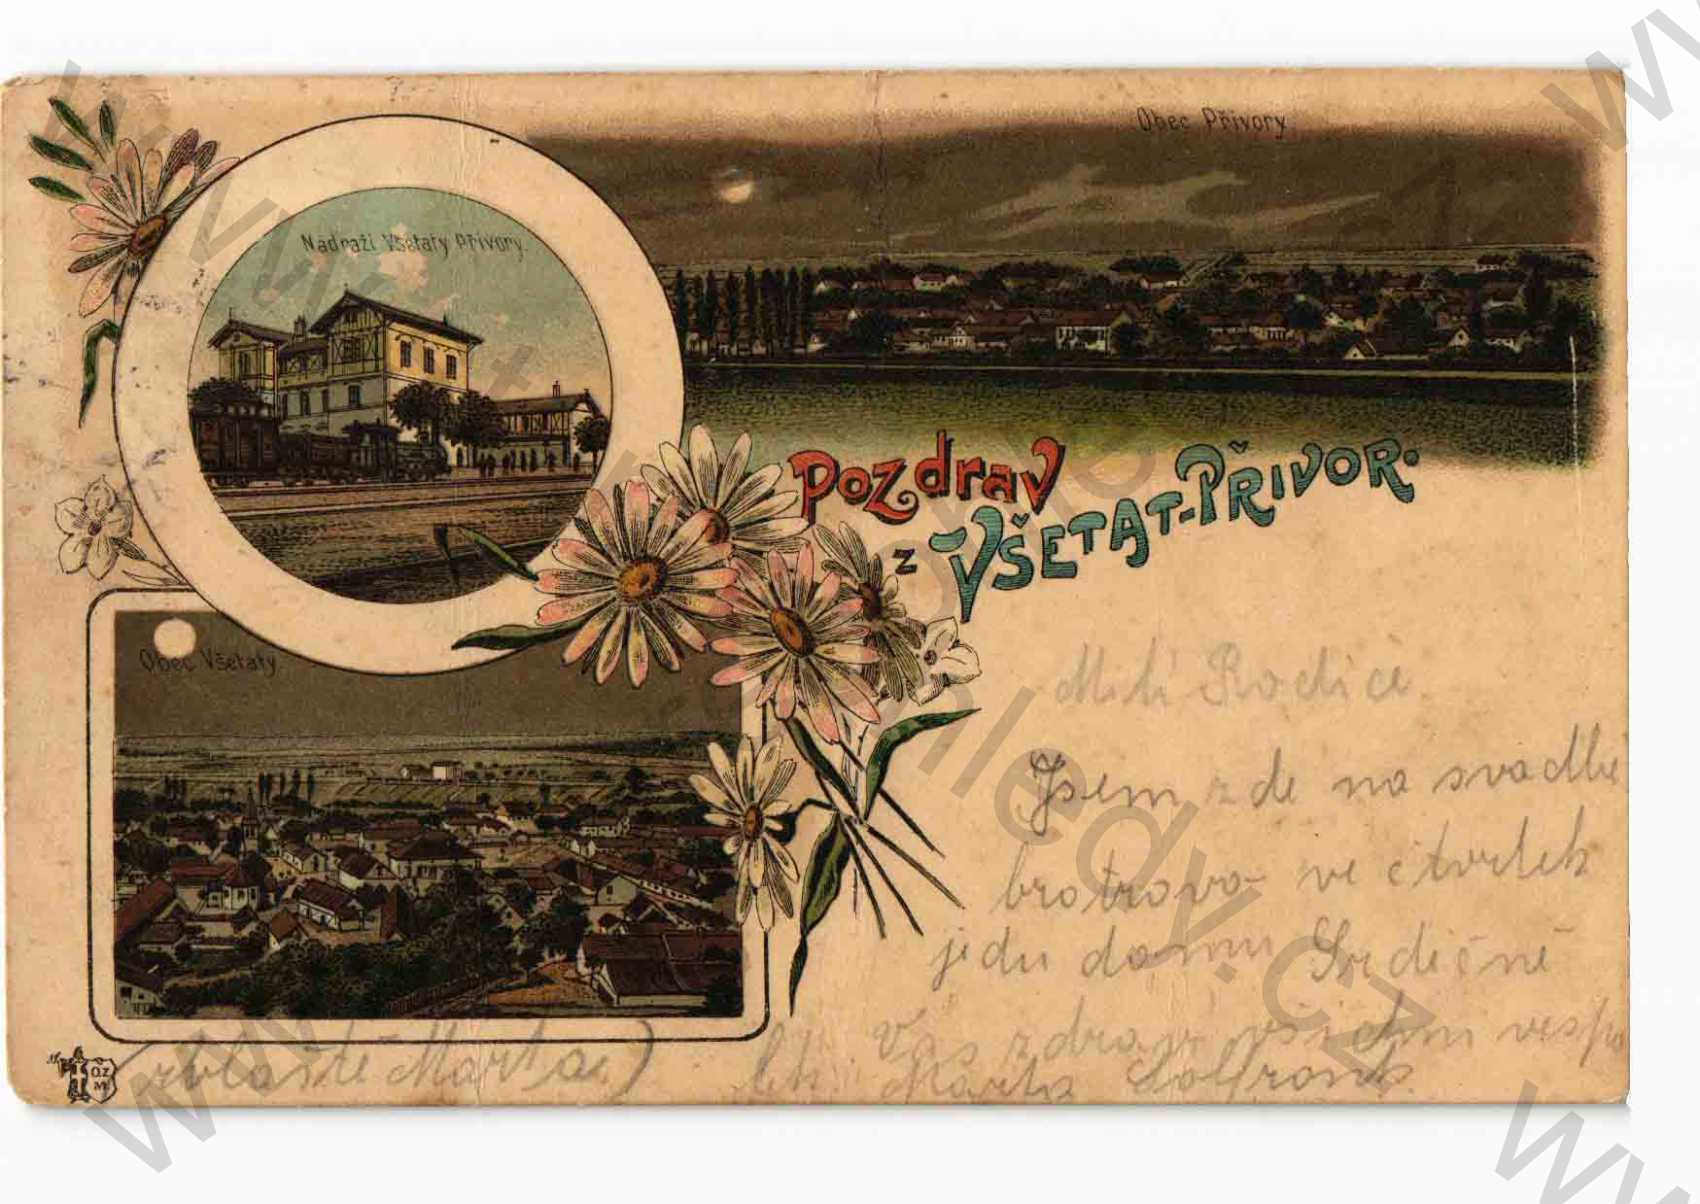 Obec Přívory
Nádraží Všetaty Přívory.
Pozdrav
z Všetat-Přívor.
Obec Všetaty
Milí Rodiče
Jsem zde na svadbě
bratrova ve čtvrtek
jedu domu Srdečně
Vás zdraví všichni vespo
zvláště Marta)